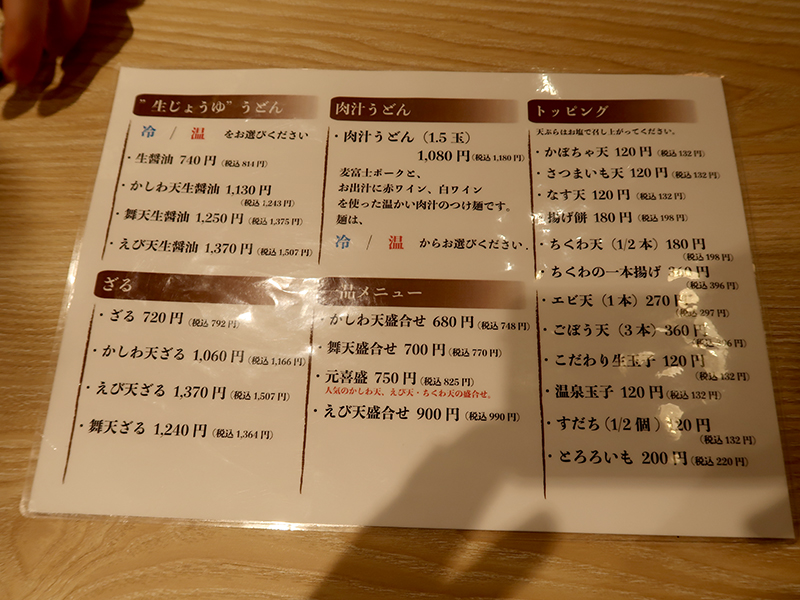 ”生じょうゆ”うどん
冷 / 温 をお選びください
・生醤油 740円(税込814円)
・かしわ天生醤油 1,130円
(税込1,243円)
・舞天生醤油 1,250円(税込1,375円)
・えび天生醤油 1,370円(税込1,507円)
ざる
・ざる 720円(税込792円)
・かしわ天ざる 1,060円(税込1,166円)
・えび天ざる 1,370円(税込1,507円)
・舞天ざる 1,240円(税込1,364円)
肉汁うどん
・肉汁うどん(1.5玉)
1,080円(税込1,180円)
麦富士ポークと、
お出汁に赤ワイン、白ワイン
を使った温かい肉汁のつけ麺です。
麺は、
冷 / 温 からお選びください.
品メニュー
・かしわ天盛合せ 680円(税込748円)
・舞天盛合せ 700円(税込770円)
・元喜盛 750円(税込825円)
人気のかしわ天、えび天・ちくわ天の盛合せ。
・えび天盛合せ 900円(税込990円)
トッピング
天ぷらはお塩で召し上がってください。
・かぼちゃ天 120円(税込132円)
・さつまいも天 120円(税込132円)
・なす天 120円(税込132円)
・揚げ餅 180円(税込198円)
・ちくわ天(1/2本)180円
(税込198円)
・ちくわの一本揚げ 円
(税込396円)
・エビ天(1本)270円
(税込297円)
・ごぼう天(3本)360円
・こだわり生玉子 120円
(税込132円)
・温泉玉子 120円(税込132円)
・すだち(1/2個)120円
(税込132円)
・とろろいも 200円(税込220円)